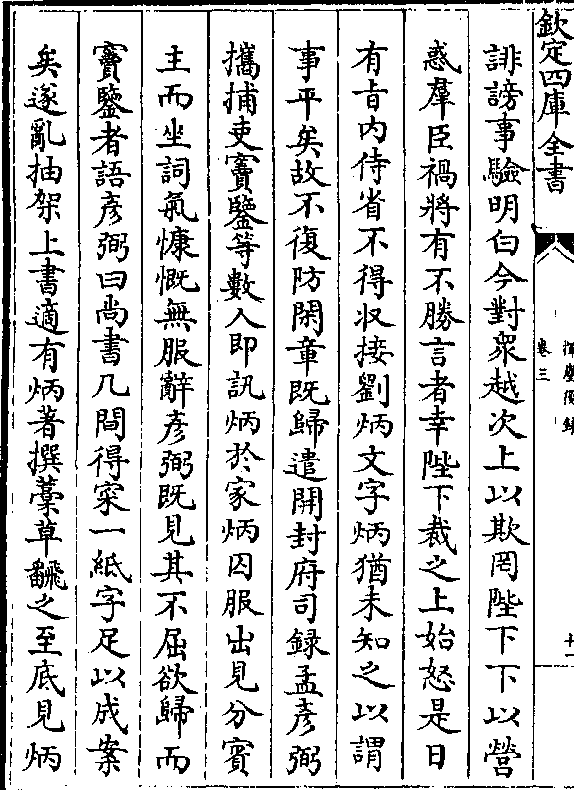 欽定四庫全書
揮麈後録
卷三
十一
誹謗事驗明白今對衆越次上以欺罔陛下下以營
惑羣臣禍將有不勝言者幸陛下裁之上始怒是日
有旨内侍省不得收接劉炳文字炳猶未知之以謂
事平矣故不復防閑章既歸遣開封府司録孟彦弼
攜捕吏竇鑒等數人即訊炳於家炳囚服出見分賓
主而坐詞氣慷慨無服辭彦弼既見其不屈欲歸而
竇鑒者語彦弼曰尚書几間得寀一紙字足以成案
矣遂亂抽架上書適有炳著撰藁草飜之至底見炳